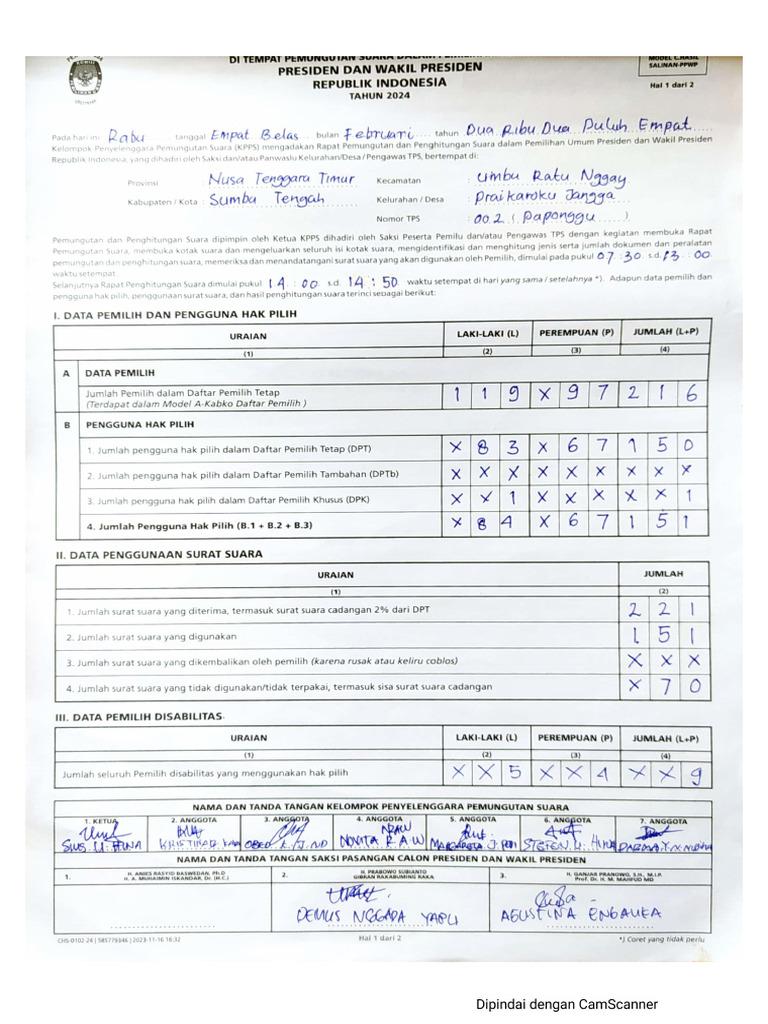 DI TEMPAT PEMUNGUTAN SUARA DALAM
MODEL C.HASIL
SALINAN-PPWP
PRESIDEN DAN WAKIL PRESIDEN
REPUBLIK INDONESIA
TAHUN 2024
Hal 1 dari 2
Pada hari ini Rabu tanggal Empat Belas bulan Februari tahun Dua Ribu Dua Puluh Empat
Kelompok Penyelenggara Pemungutan Suara (KPPS) mengadakan Rapat Pemungutan dan Penghitungan Suara dalam Pemilihan Umum Presiden dan Wakil Presiden
Republik Indonesia, yang dihadiri oleh Saksi dan/atau Panwaslu Kelurahan/Desa / Pengawas TPS, bertempat di:
Provinsi Nusa Tenggara Timur Kecamatan : Umbu Ratu Nggay
Kabupaten / Kota : Sumba Tengah Kelurahan / Desa : Praikaroku Jangga
Nomor TPS : 002 ( Paponggu )
Pemungutan dan Penghitungan Suara dipimpin oleh Ketua KPPS dihadiri oleh Saksi Peserta Pemilu dan/atau Pengawas TPS dengan kegiatan membuka Rapat
Pemungutan Suara, membuka kotak suara dan mengeluarkan seluruh isi kotak suara, mengidentifikasi dan menghitung jenis serta jumlah dokumen dan peralatan
pemungutan dan penghitungan suara, memeriksa dan menandatangani surat suara yang akan digunakan oleh Pemilih, dimulai pada pukul 07 : 30 s.d. 13 : 00
waktu setempat.
Selanjutnya Rapat Penghitungan Suara dimulai pukul 14 : 00 s.d. 14 : 50 waktu setempat di hari yang sama / setelahnya *). Adapun data pemilih dan
pengguna hak pilih, penggunaan surat suara, dan hasil penghitungan suara terinci sebagai berikut:
I. DATA PEMILIH DAN PENGGUNA HAK PILIH
URAIAN LAKI-LAKI (L) PEREMPUAN (P) JUMLAH (L+P)
(1) (2) (3) (4)
A DATA PEMILIH
Jumlah Pemilih dalam Daftar Pemilih Tetap
(Terdapat dalam Model A-Kabko Daftar Pemilih ) 1 1 9 X 9 7 2 1 6
B PENGGUNA HAK PILIH
1. Jumlah pengguna hak pilih dalam Daftar Pemilih Tetap (DPT) X 8 3 X 6 7 1 5 0
2. Jumlah pengguna hak pilih dalam Daftar Pemilih Tambahan (DPTb) X X X X X X X X X
3. Jumlah pengguna hak pilih dalam Daftar Pemilih Khusus (DPK) X X 1 X X X X X 1
4. Jumlah Pengguna Hak Pilih (B.1 + B.2 + B.3) X 8 4 X 6 7 1 5 1
II. DATA PENGGUNAAN SURAT SUARA
URAIAN JUMLAH
(1) (2)
1. Jumlah surat suara yang diterima, termasuk surat suara cadangan 2% dari DPT 2 2 1
2. Jumlah surat suara yang digunakan 1 5 1
3. Jumlah surat suara yang dikembalikan oleh pemilih (karena rusak atau keliru coblos) X X X
4. Jumlah surat suara yang tidak digunakan/tidak terpakai, termasuk sisa surat suara cadangan X 7 0
III. DATA PEMILIH DISABILITAS
URAIAN LAKI-LAKI (L) PEREMPUAN (P) JUMLAH (L+P)
(1) (2) (3) (4)
Jumlah seluruh Pemilih disabilitas yang menggunakan hak pilih X X 5 X X 4 X X 9
NAMA DAN TANDA TANGAN KELOMPOK PENYELENGGARA PEMUNGUTAN SUARA
1. KETUA 2. ANGGOTA 3. ANGGOTA 4. ANGGOTA 5. ANGGOTA 6. ANGGOTA 7. ANGGOTA
NOVITA R.A.W
NAMA DAN TANDA TANGAN SAKSI PASANGAN CALON PRESIDEN DAN WAKIL PRESIDEN
1. H. ANIES RASYID BASWEDAN, Ph.D 2. H. PRABOWO SUBIANTO 3. H. GANJAR PRANOWO, S.H., M.I.P.
H. A. MUHAIMIN ISKANDAR, Dr. (H.C.) GIBRAN RAKABUMING RAKA Prof. Dr. H. M. MAHFUD MD
DEMUS NGGADA YAPU AGUSTINA
CHS-0102-24 | 585779346 | 2023-11-16 16:32 Hal 1 dari 2 *) Coret yang tidak perlu
Dipindai dengan CamScanner